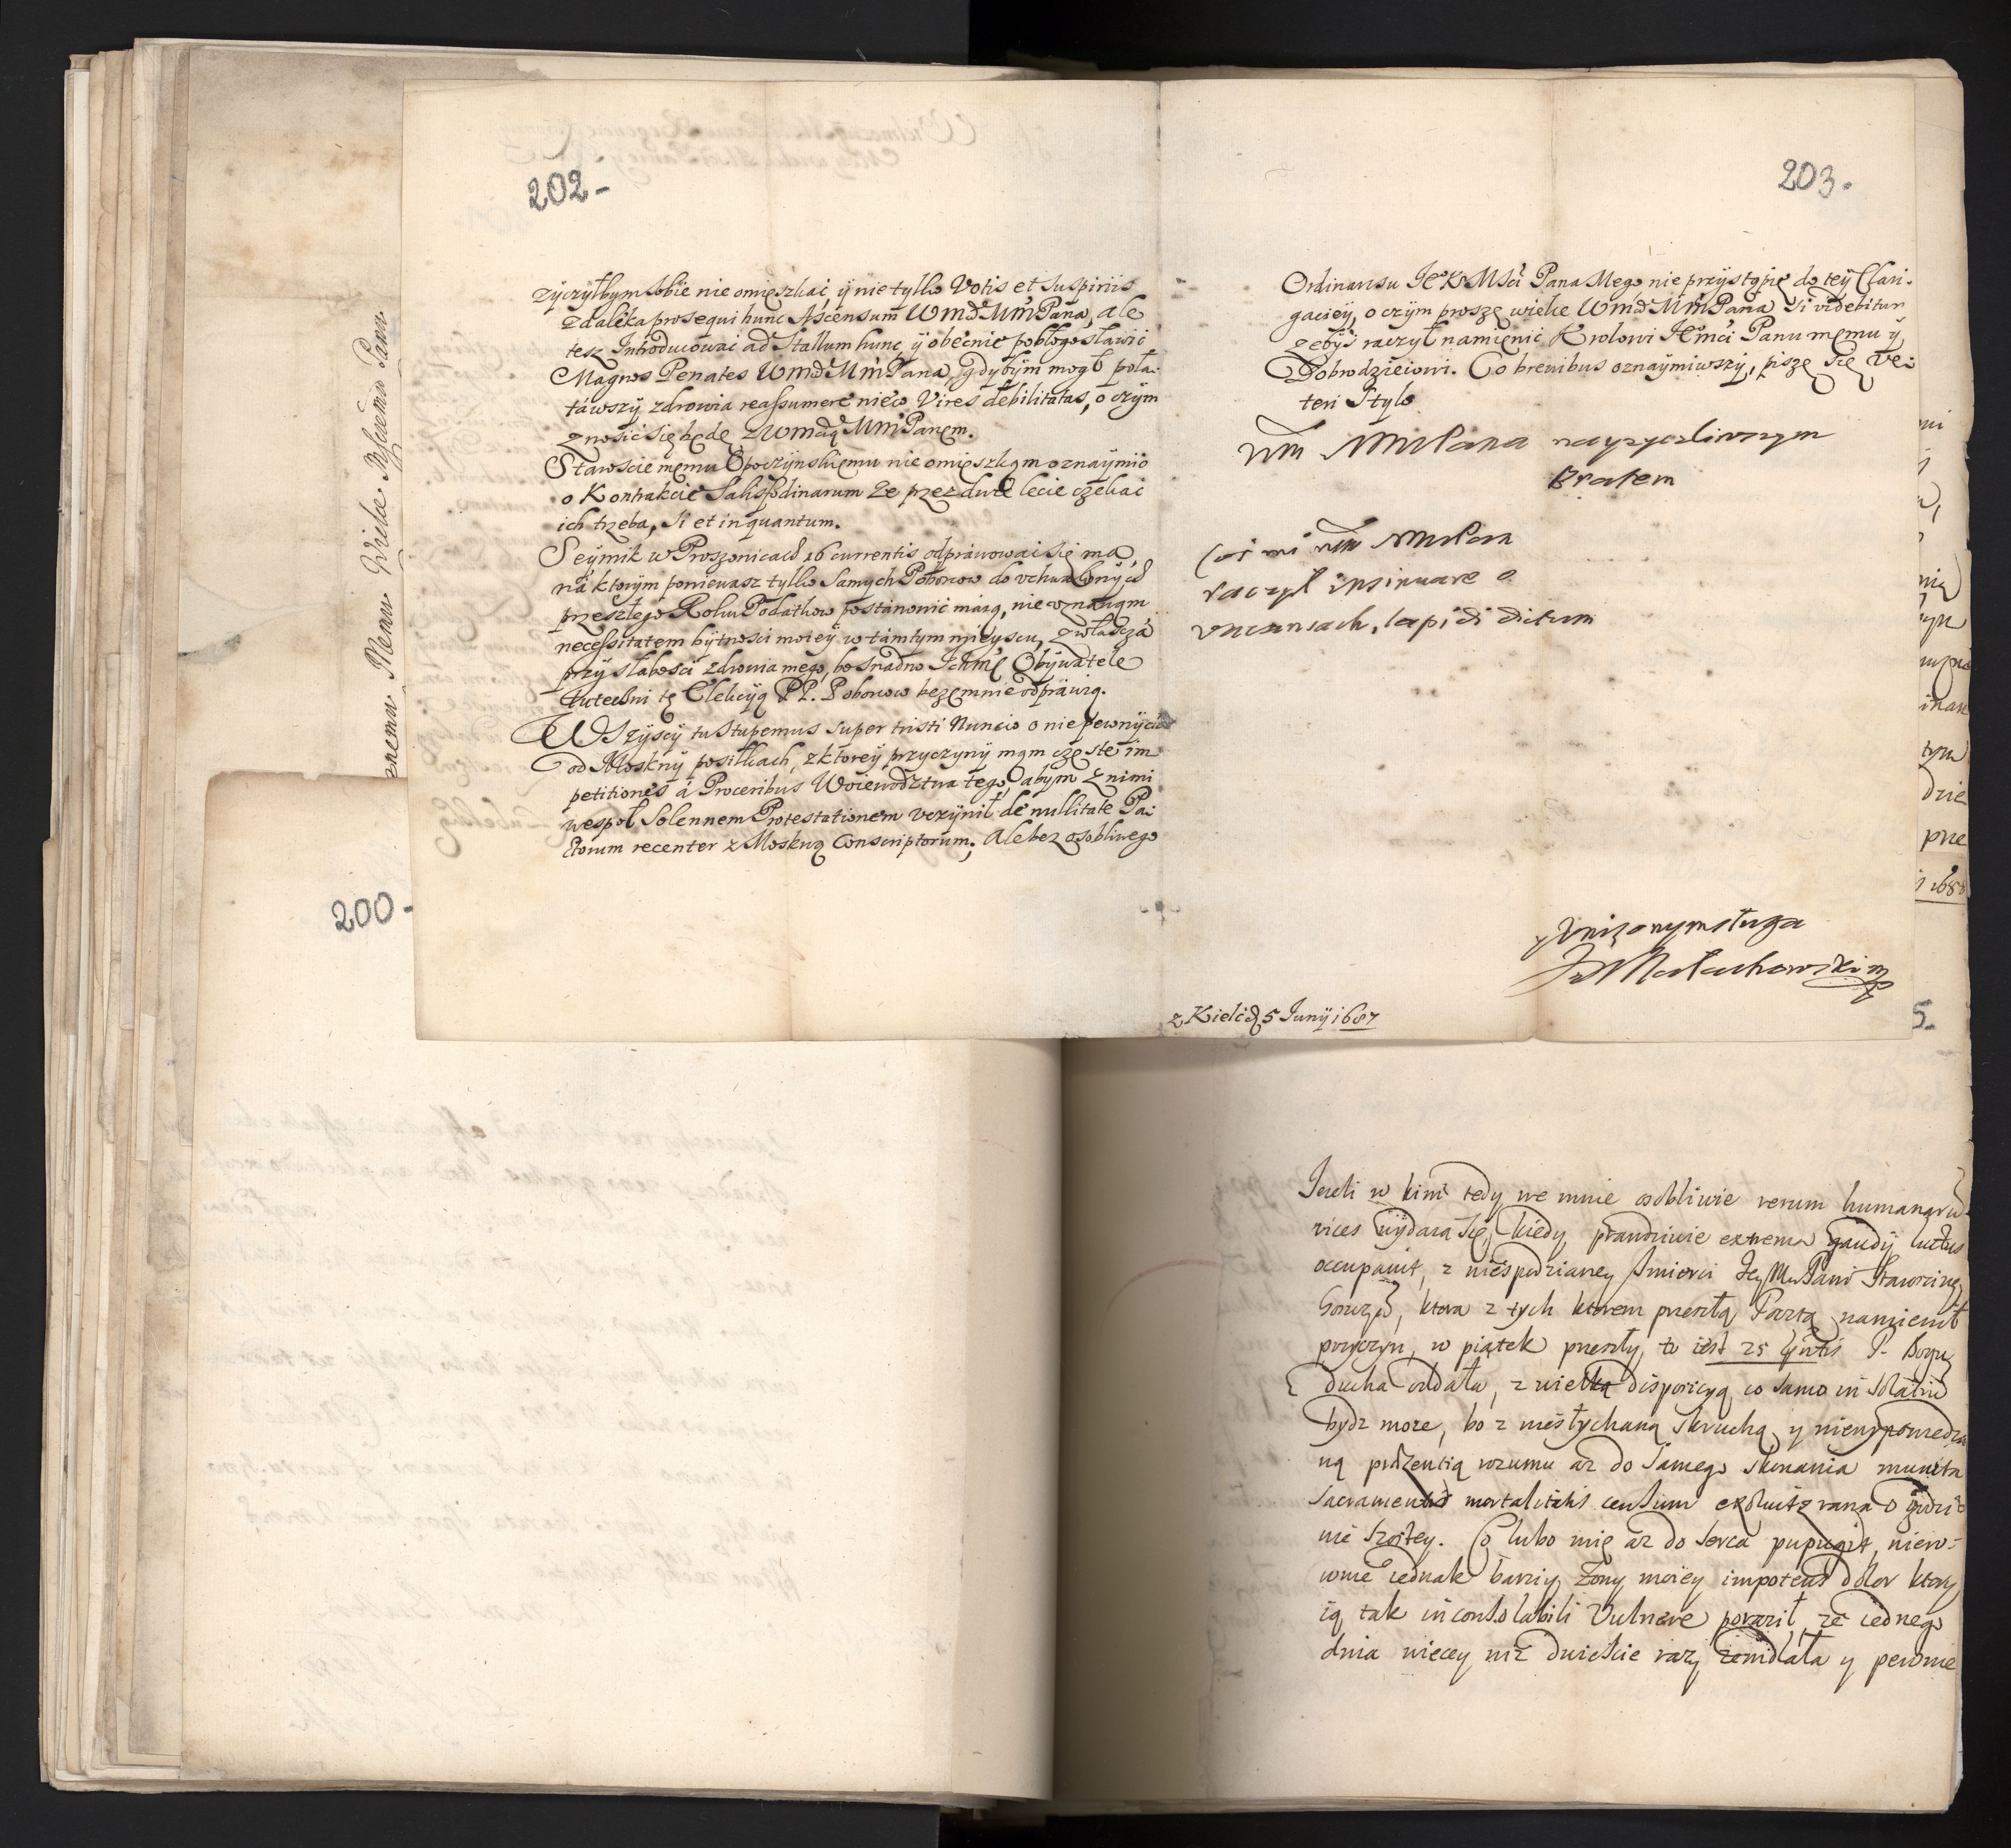 202-
zyczyłbym sobie nie omięszkać, ÿ nie tylko Votis et Suspiriis
zdaleka prosequi hunc Ascensum WMd MMPana, ale
tesz Introducować ad Stallum hunc, ÿ obecnie pobłogosławić
Magnos Penates WMd MMPana, gdybÿm mogł poła-
tawszÿ zdrowia reassumere nieco Vires debilitatas, o czÿm
znosić się będę z WMcią MMPanem.
Starościemęmu Opoczÿnskięmu nie omięszkąm oznaÿmić
o Kontrakcie Salisfodinarum że przez dwie lecie czekać
ich trzeba, Si et inquantum.
Seÿmik w Proszowicach 16 currentis odprawować się ma
na ktorÿm ponieważ tylko Samÿch Poborcow do vchwalonÿch
przeszłego Roku Podatkow postanowić maią, nie vznaiąm
necessitatem bÿtnosci moieÿ w tamtÿm mieÿscu, zwłaszcza
przÿ słabosci zdrowia mego, bo snadno Ichmć Obÿwatele
tuteczni tę Elekcÿą PP. Poborcow bezęmnie odprawią.
Wszÿscÿ tu Stupemus super tristi Nuncio o niepewnÿch
od Moskwÿ posiłkach, z ktoreÿ przyczynÿ mąm częste im
petitiones à Proceribus Woiewodztwa tego, abÿm z nimi
wespoł Solennem Protestationem vczÿnił de nullitate Pa-
ctorum recenter z Moskwą Conscriptorum; Ale bez osobliwego
203.
Ordinansu JeKMści Pana Mego nie przÿstąpię do teÿ Clari-
gacieÿ, o czÿm proszę wielce WMd MMPana Si videbitur
żebÿś raczÿł namięnić Krolowi Jemści Panu męmu ÿ
Dobrodzieiowi. Co brevibus oznaÿmiwszÿ, piszę się Ve-
teri Stylo
WM MMPana nayzyczliwszym
Bratem
Coś mi WM MMPan
raczył insinuare o
vacansach, lapidi dictum
y Vnizonym sługa
J Małachowski
z Kielc d 5 Junÿ 1687
200-
Jeżeli w kim tedy we mnie osobliwie rerum humanarum
vices wydarą się, kiedy prawdziwie extrema gaudÿ luctus
occupavit, z niespodzianey smierci JeyMPani Starosciney
, ktora z tych ktorem przeszłą Pocztą namienił
przyczyn, w piątek przeszły, to iest 25 P. Bogu
ducha oddała, z wielką dispozicyą co samo in solatium
bydz moze, bo z niesłychaną skruchą y niewypowiedzia
ną prezentią rozumu az do samego skonania munita
Sacramentis mortalitatis censum exoluit z rana o godzi-
nie szostey. Co lubo mię az do serca pupugit, niero-
wnie iednak barziy zony moiey impotens dolor ktory
ią tak inconsolabili Vulnere poraził, ze iednego
dnia wiecey niz dwiescie razy zemdlała y pewnie